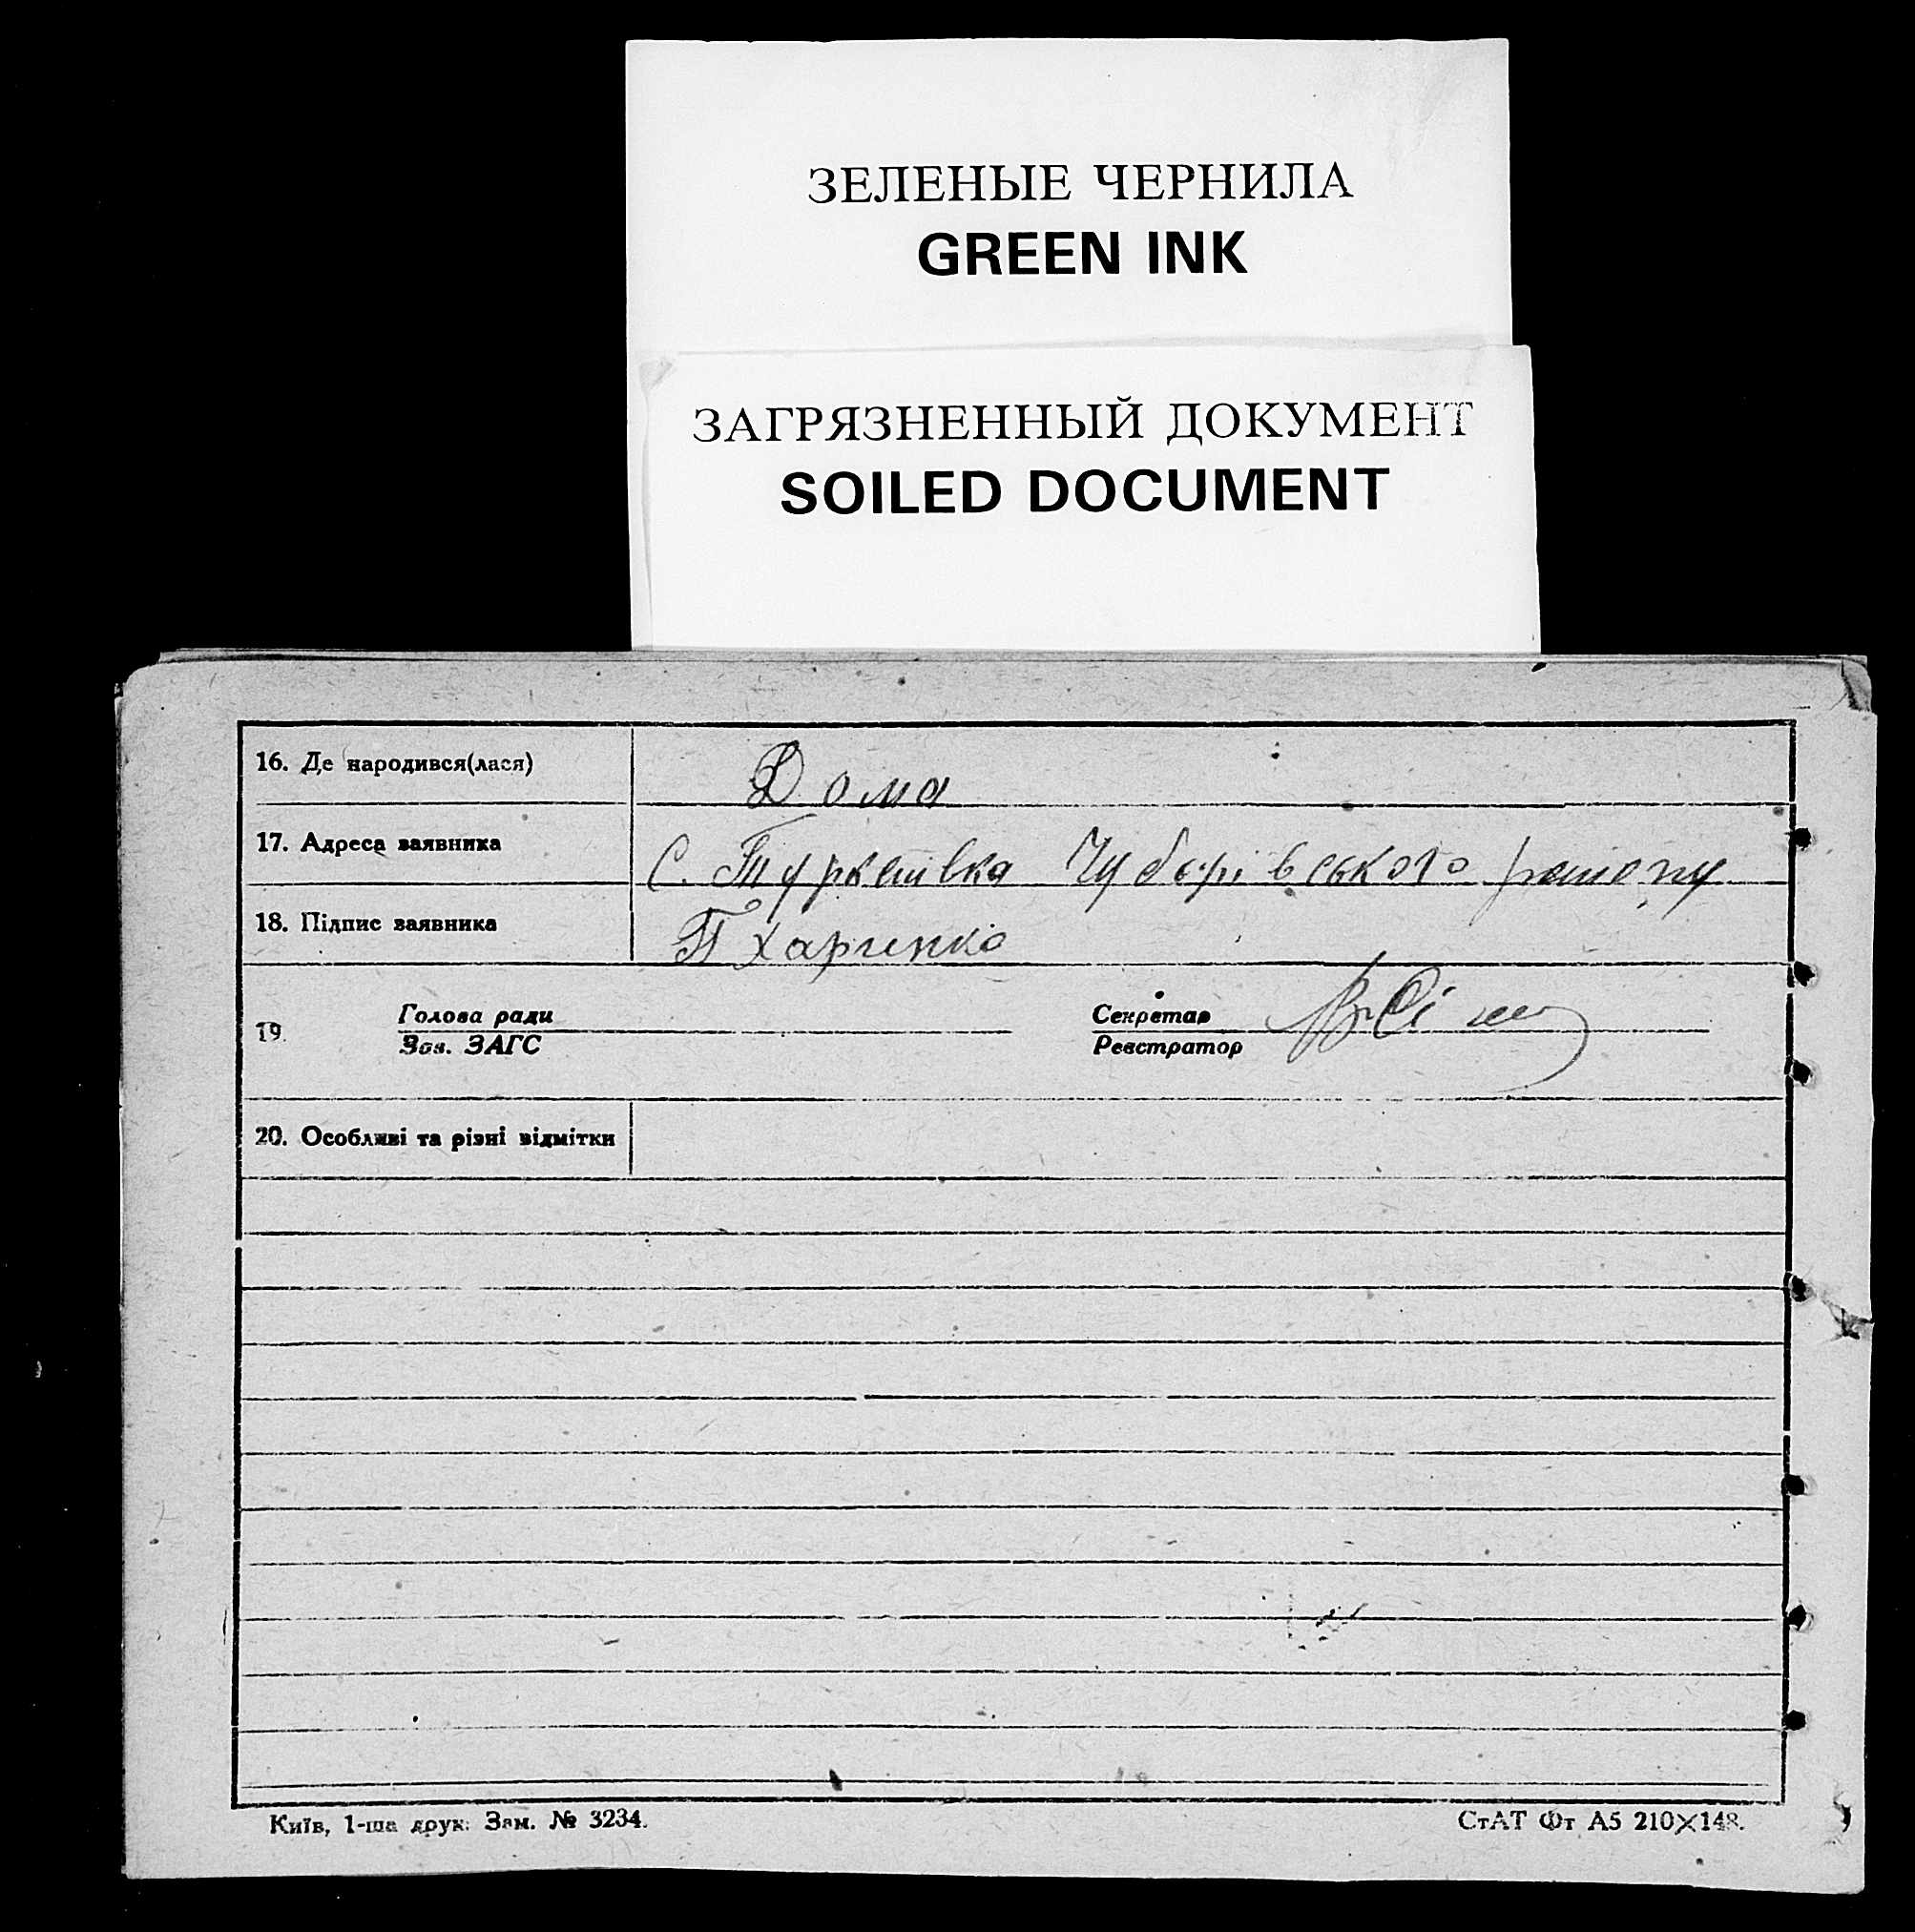 ЗЕЛЕНЫЕ ЧЕРНИЛА
GREEN INK
ЗАГРЯЗНЕННЫЙ ДОКУМЕНТ
SOILED DOCUMENT
16. Де народився(лася) Дома
17. Адреса заявника С. Туркенівка Чубарівського району
18. Підпис заявника П Харченко
19. Голова ради Секретар
Зав. ЗАГС Реєстратор
20. Особливі та різні відмітки
Київ, 1-ша друк. Зам. № 3234.
СтАТ Фт А5 210×148.